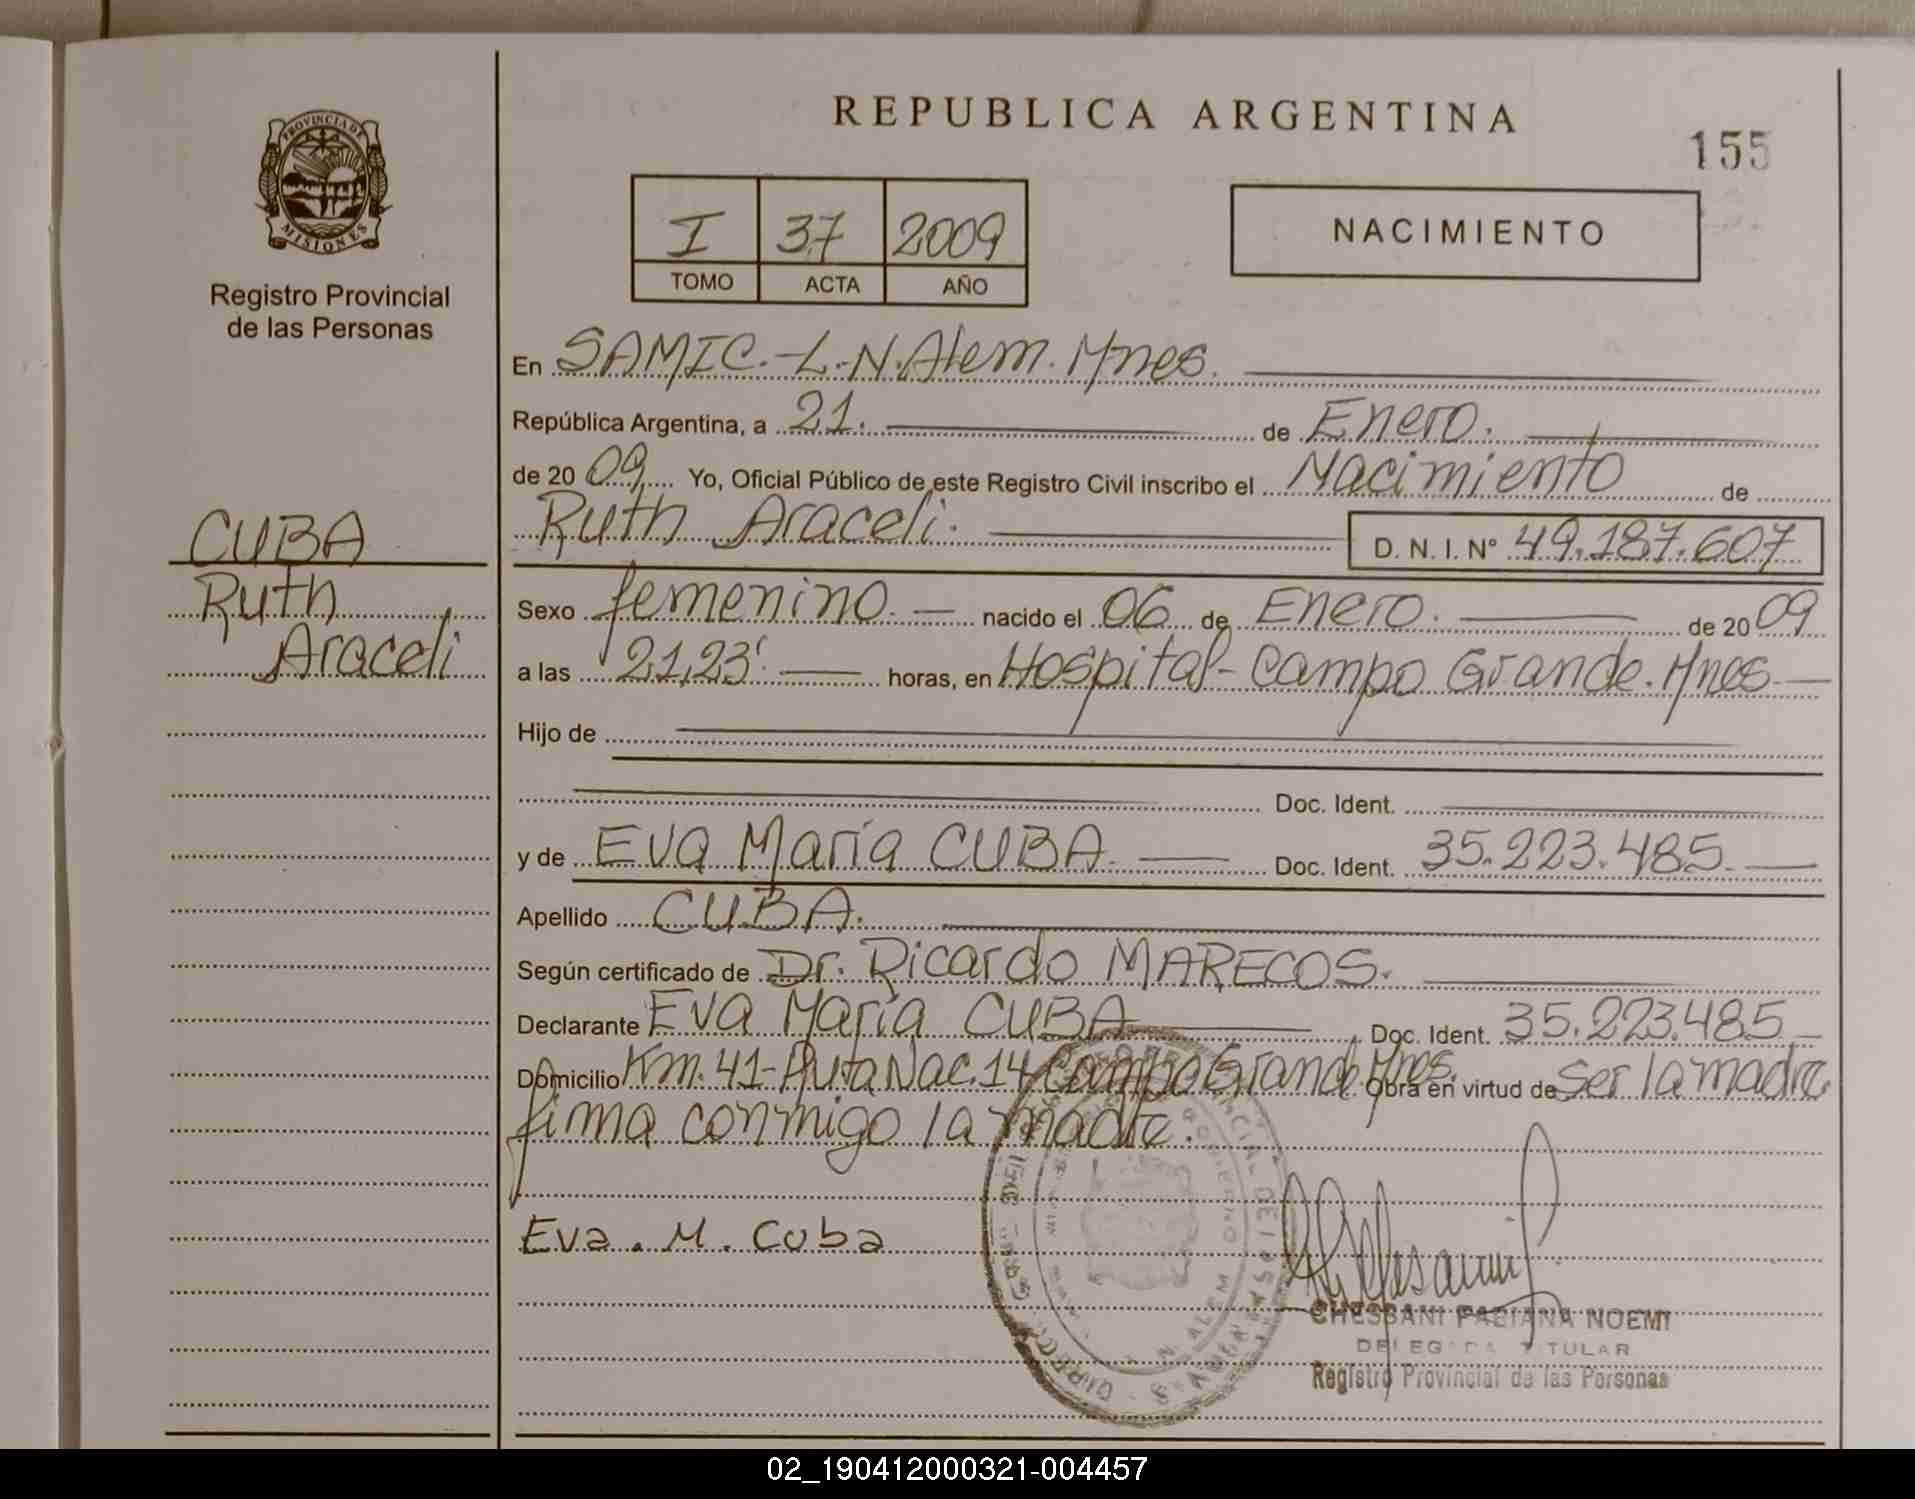 REPUBLICA ARGENTINA
155
PROVINCIA DE
MISIONES
Registro Provincial
de las Personas
I 37 2009
TOMO ACTA AÑO
NACIMIENTO
En SAMIC.-L.N.Alem.Mnes.
República Argentina, a 21. de Enero.
de 20 09 Yo, Oficial Público de este Registro Civil inscribo el Nacimiento de
Ruth Araceli. D. N. I. Nº 49.187.607
CUBA
Ruth
Araceli
Sexo femenino. nacido el 06 de Enero. de 20 09
a las 21,23' horas, en Hospital-Campo Grande.Mnes
Hijo de
Doc. Ident.
y de Eva María CUBA. Doc. Ident. 35.223.485.
Apellido CUBA.
Según certificado de Dr. Ricardo MARECOS.
Declarante Eva María CUBA Doc. Ident. 35.223.485
Domicilio Km.41-Ruta Nac.14 Campo Grande.Mnes. Obra en virtud de Ser la madre
firma conmigo la madre.
Eva . M. Cuba
CHESSANI FABIANA NOEMI
DELEGADA TITULAR
Registro Provincial de las Personas
02_190412000321-004457